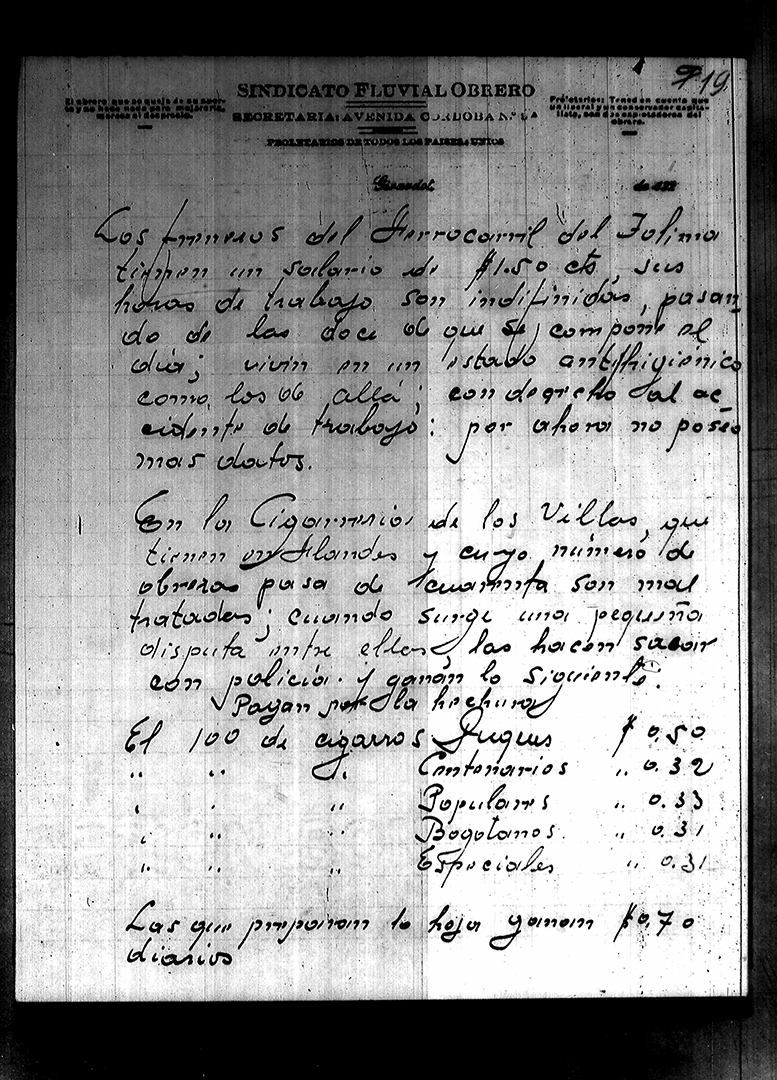 19
SINDICATO FLUVIAL OBRERO
El obrero que se queja de su suer-
te y no hace nada para mejorarla,
merece el desprecio.
SECRETARIA: AVENIDA CORDOBA N.º
PROLETARIOS DE TODOS LOS PAISES: UNIOS
Proletarios: Tened en cuenta que
un liberal y un conservador capita-
lista, son dos explotadores del
obrero.
Girardot, de 192
Los freneros del Ferrocarril del Tolima
tienen un salario de $1.50 cts, sus
horas de trabajo son indifinidas, pasan-
do de las doce de que se compone el
día; viven en un estado antihigiénico
como los de allá; con derecho al ac-
cidente de trabajo: por ahora no poseo
mas datos.
En la Cigarreria de los Villas, que
tienen en Flandes y cuyo número de
obreras pasa de cuarenta son mal
tratadas; cuando surge una pequeña
disputa entre ellas, las hacen sacar
con policía y ganán lo siguiente:
Pagan por la hechura
El 100 de cigarros Duques $ 0.50
" " " Centenarios " 0.32
" " " Populares " 0.33
" " " Bogotanos " 0.31
" " " Especiales " 0.31
Las que preparan la hoja ganan $0.70
diarios